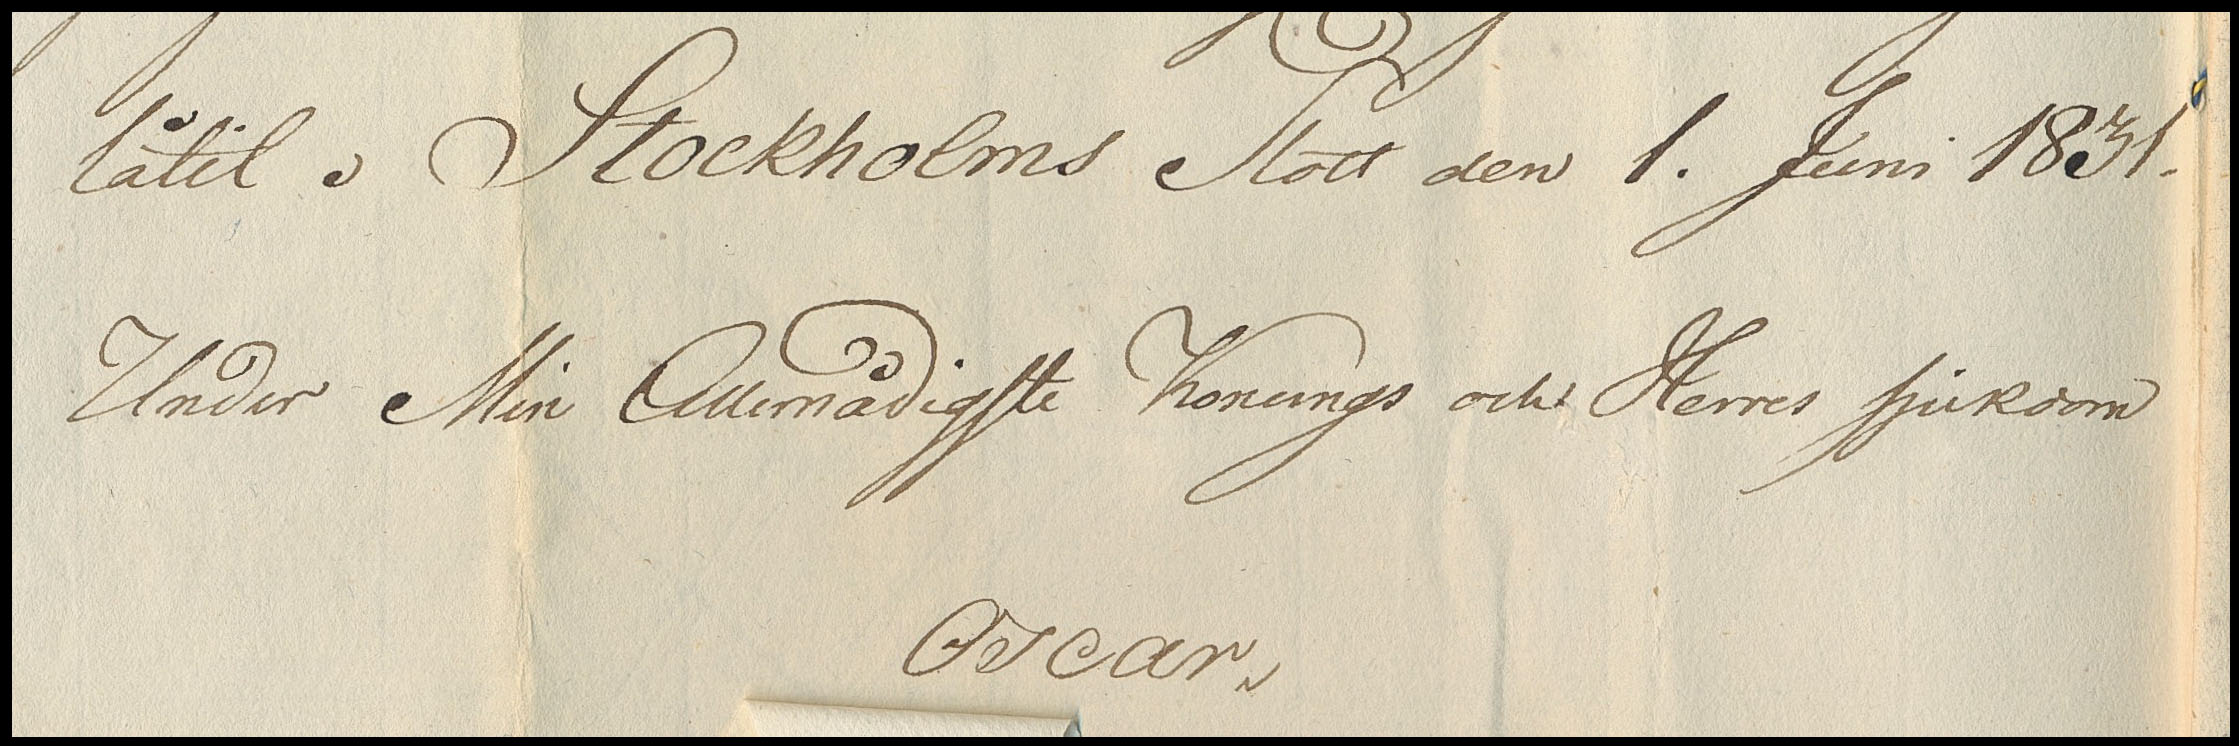 låtit å Stockholms Slott den 1. Juni 1831.
Under Min Allernådigste Konungs och Herres sjukdom
Oscar